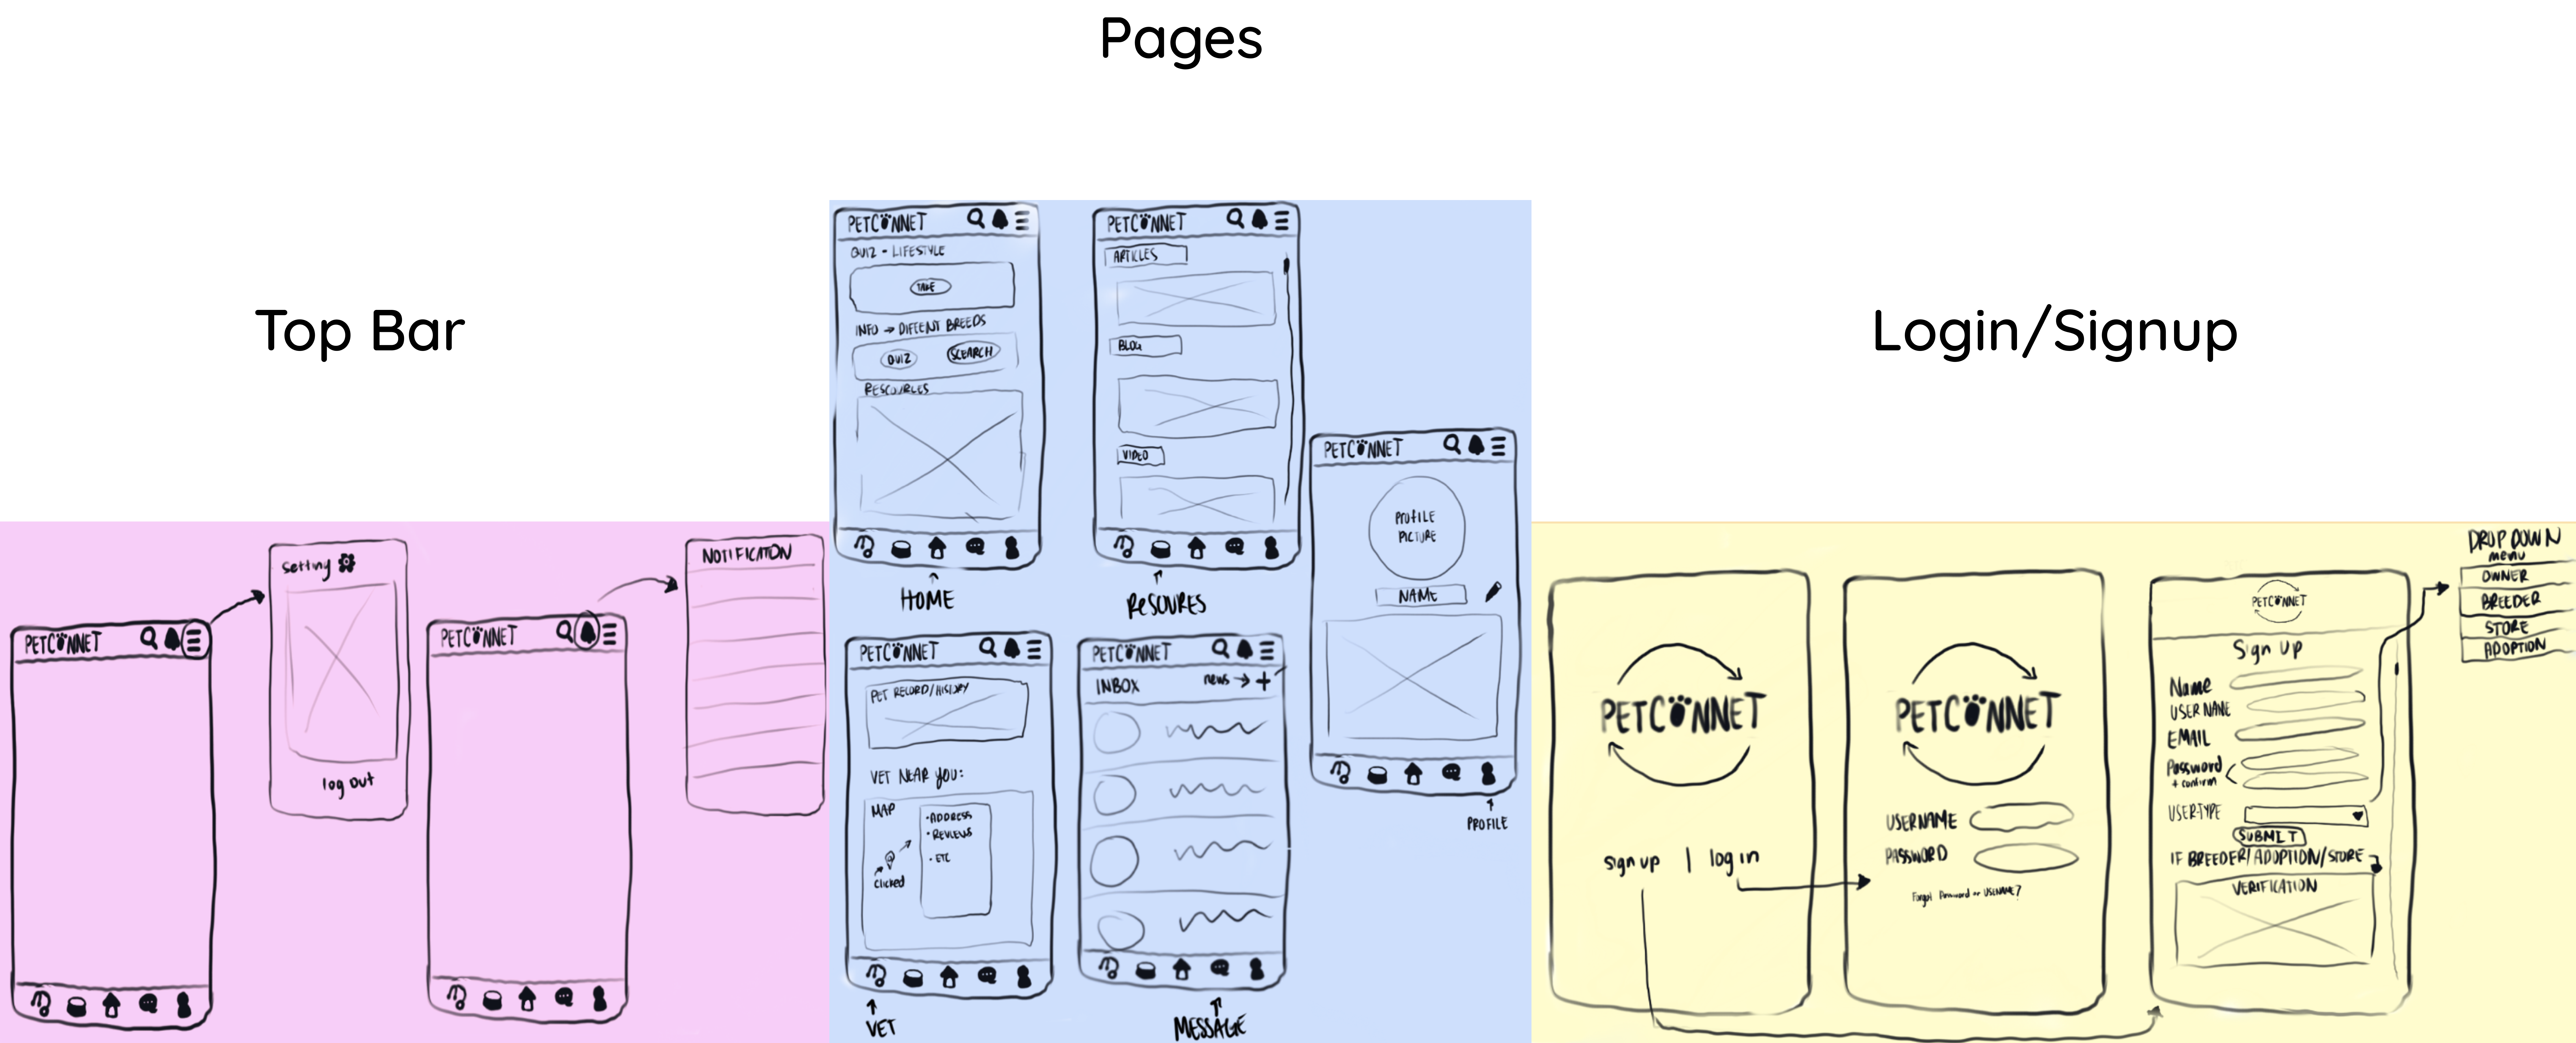 Pages
Top Bar
Login/Signup
PETCONNET
setting
log out
PETCONNET
NOTIFICATION
PETCONNET
QUIZ - LIFESTYLE
TAKE
INFO → DIFFENT BREEDS
QUIZ
SEARCH
RESCOURCES
HOME
PETCONNET
ARTICLES
BLOG
VIDEO
RESOURES
PETCONNET
PROFILE
PICTURE
NAME
PROFILE
PETCONNET
PET RECORD/HISTORY
VET NEAR YOU:
MAP
clicked
• ADDRESS
• REVIEWS
• ETC
VET
PETCONNET
INBOX
news → +
MESSAGE
PETCONNET
sign up | log in
PETCONNET
USERNAME
PASSWORD
Forgot Password or USERNAME?
PETCONNET
Sign Up
Name
USER NAME
EMAIL
Password
+ confirm
USERTYPE
SUBMIT
IF BREEDER/ADOPTION/STORE
VERIFICATION
DROP DOWN
menu
OWNER
BREEDER
STORE
ADOPTION